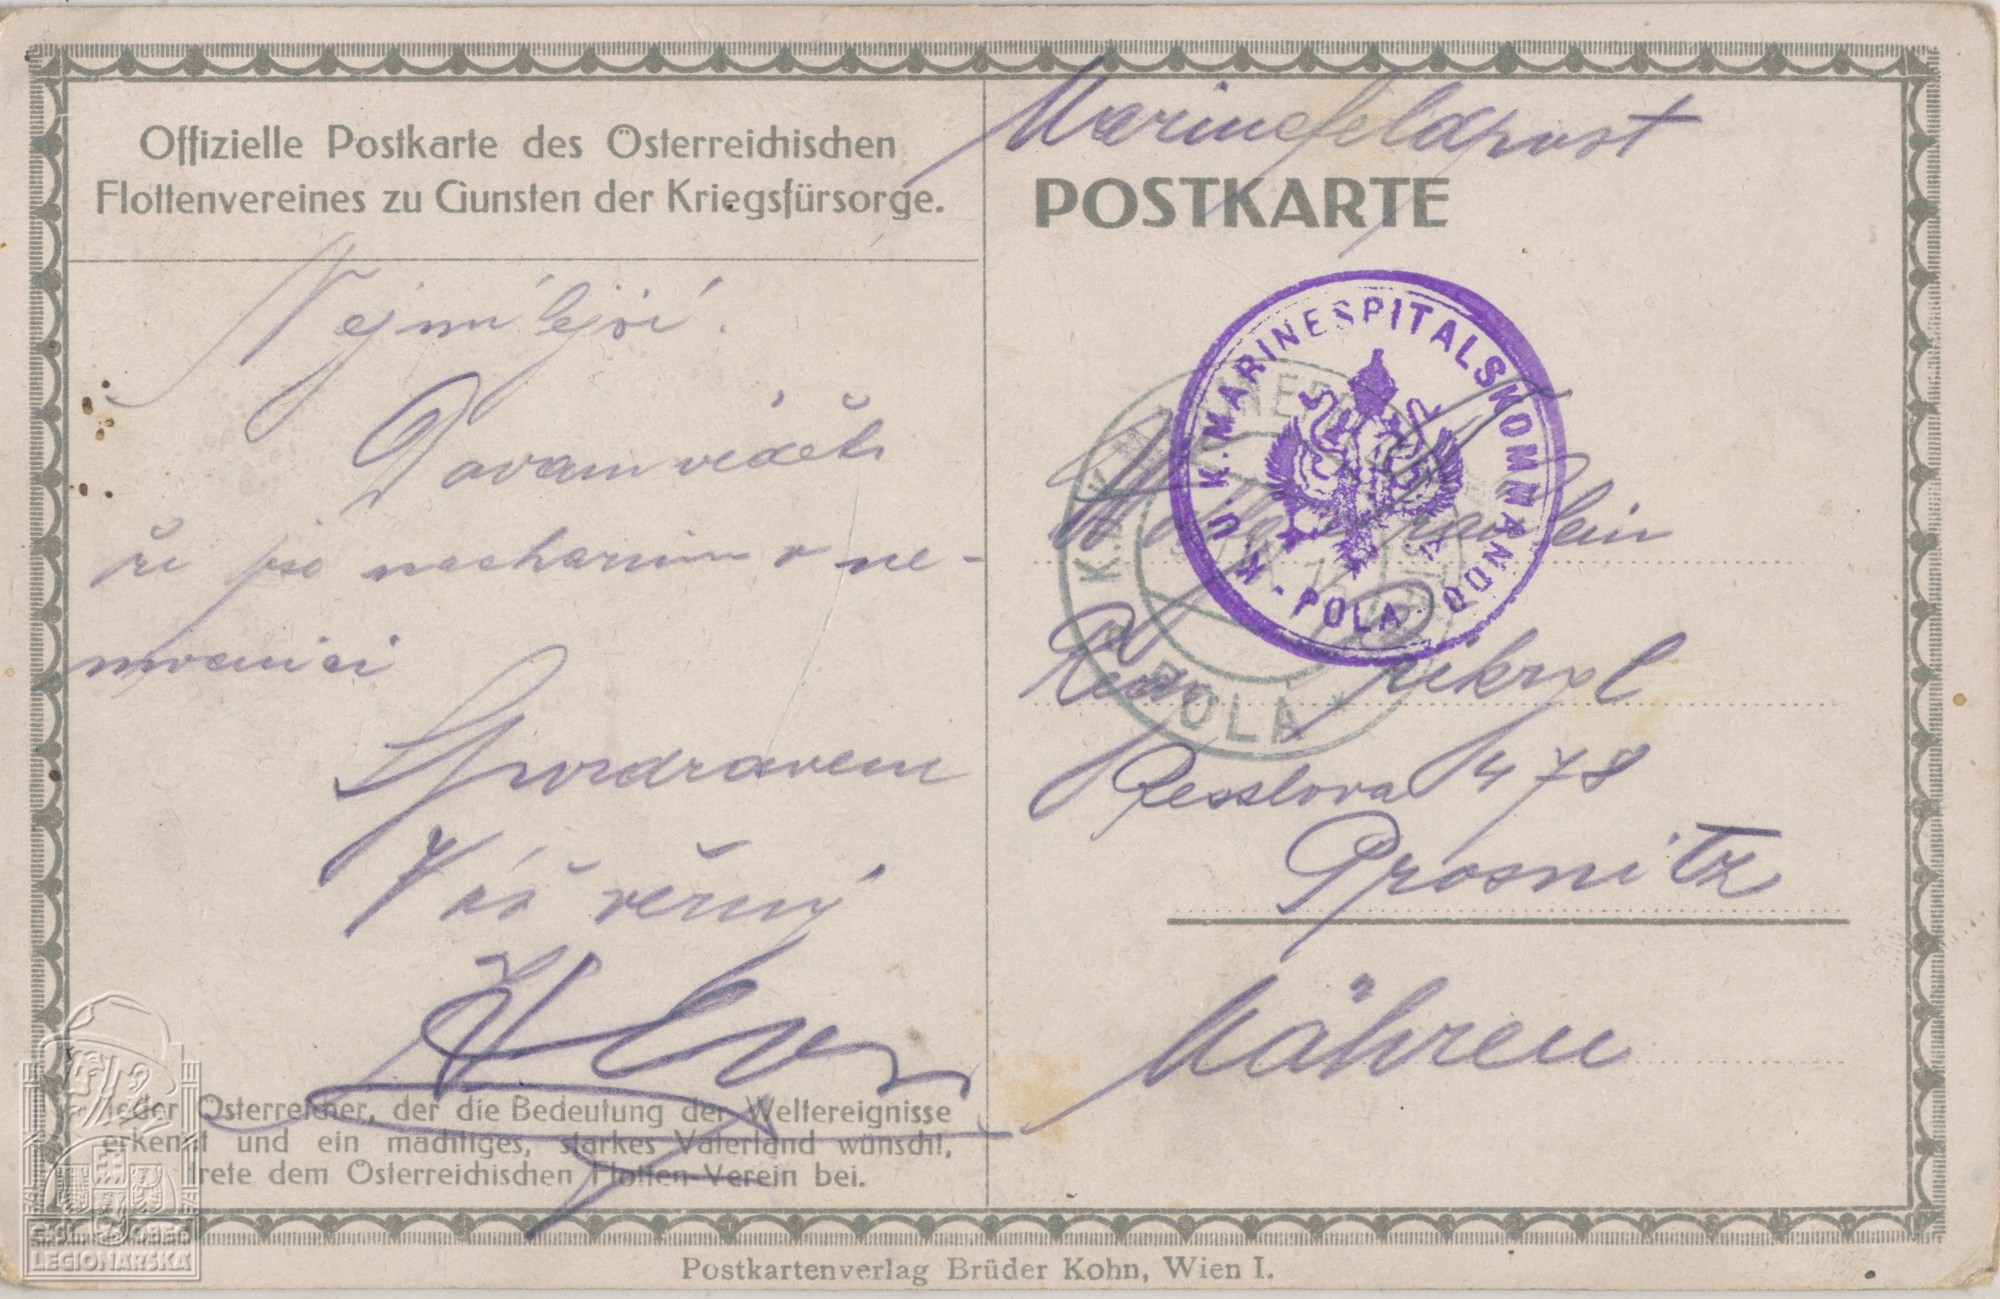 Offizielle Postkarte des Österreichischen
Flottenvereines zu Gunsten der Kriegsfürsorge.
Nejmilejší.
Davam vědeti
že jse nacharim v ne-
mocnici
S pozdravem
Váš věrný
Jeder Österreicher, der die Bedeutung der Weltereignisse
erkennt und ein mächtiges, starkes Vaterland wünscht,
trete dem Österreichischen Flotten-Verein bei.
Marinefeldpost
POSTKARTE
K. U. K. MARINESPITALSKOMMANDO
- POLA -
K.U.K.
POLA *
Fräulein
Resslova 478
Prosnitz
Mähren
Postkartenverlag Brüder Kohn, Wien I.
ČSL. OBEC
LEGIONÁŘSKÁ